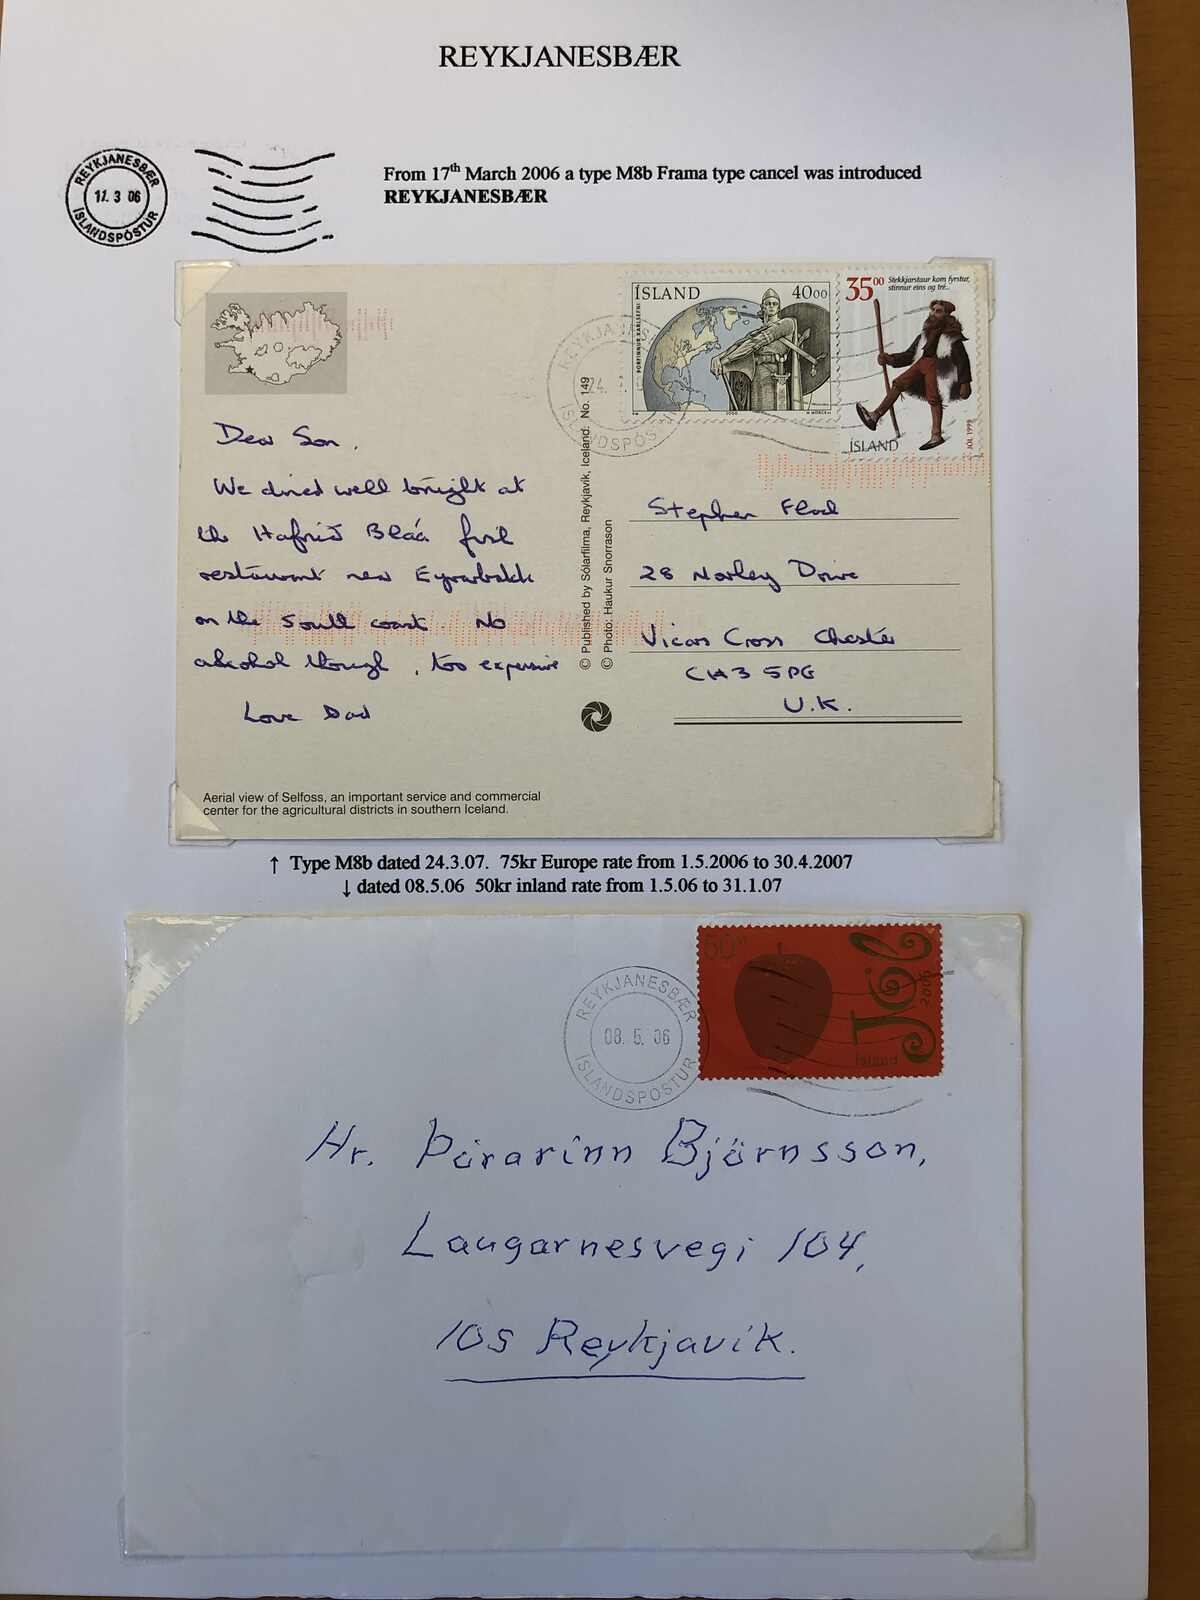 REYKJANESBÆR
REYKJANESBÆR
17. 3 06
ÍSLANDSPÓSTUR
From 17th March 2006 a type M8b Frama type cancel was introduced
REYKJANESBÆR
ÍSLAND 4000
ÞORFINNUR KARLSEFNI
2000
3500 Stekkjarstaur kom fyrstur,
stinnur eins og tré...
ÍSLAND
JÓL 1999
REYKJANES
24.
ÍSLANDSPÓS
Dear Son,
We dined well tonight at
the Hafrið Bláa fish
restaurant near Eyrarbakki
on the South coast. No
alcohol though, too expensive
Love Dad
© Published by Sólarfilma, Reykjavik, Iceland. No. 149
© Photo: Haukur Snorrason
Stephen Flood
28 Norley Drive
Vicars Cross Chester
CH3 5PG
U.K.
Aerial view of Selfoss, an important service and commercial
center for the agricultural districts in southern Iceland.
↑ Type M8b dated 24.3.07. 75kr Europe rate from 1.5.2006 to 30.4.2007
↓ dated 08.5.06 50kr inland rate from 1.5.06 to 31.1.07
REYKJANESBÆR
08. 5. 06
ÍSLANDSPÓSTUR
50
Jól
2006
Ísland
Hr. Þórarinn Björnsson,
Laugarnesvegi 104,
105 Reykjavík.